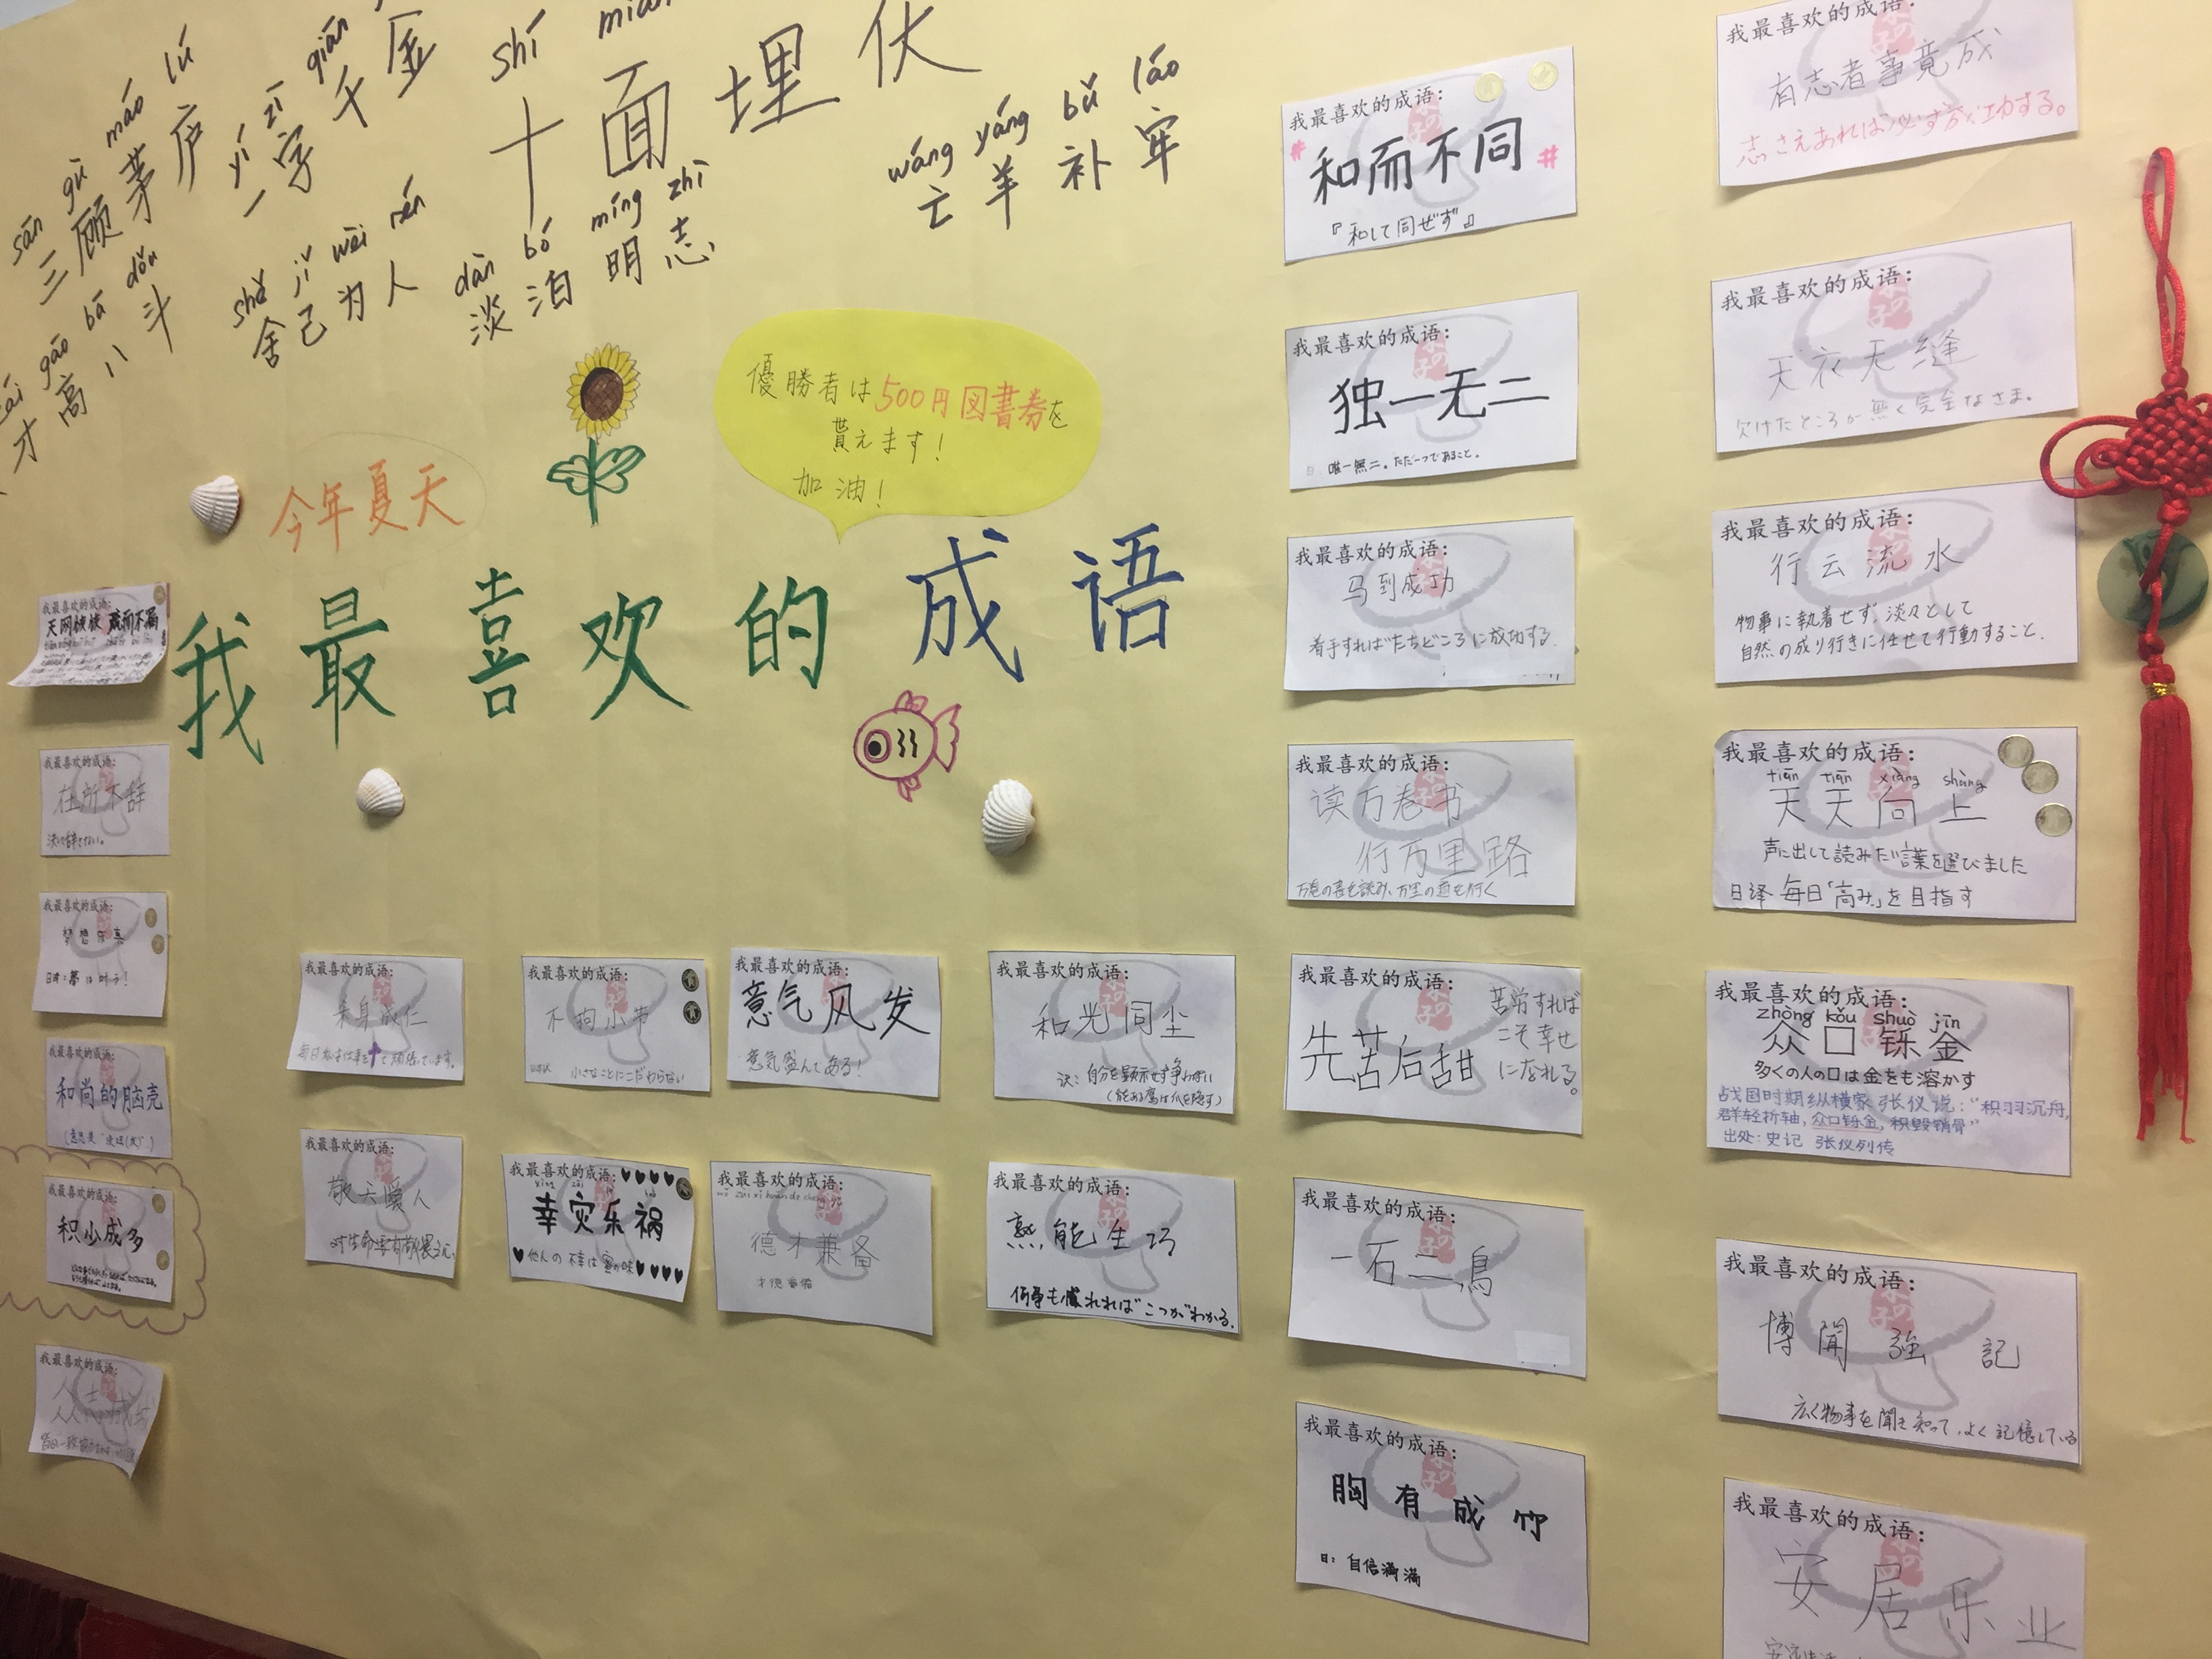 sān gù máo lú
三顾茅庐
yí zì qiān
一字千金
shí miàn
十面埋伏
wáng yáng bǔ láo
亡羊补牢
cái gāo bā dǒu
才高八斗
shě jǐ wèi rén
舍己为人
dàn bó míng zhì
淡泊明志
優勝者は500円図書券を
貰えます!
加油!
今年夏天
我最喜欢的成语
我最喜欢的成语:
天网恢恢 疏而不漏
我最喜欢的成语:
在所不辞
我最喜欢的成语:
我最喜欢的成语:
和尚的脑壳
我最喜欢的成语:
积少成多
我最喜欢的成语:
我最喜欢的成语:
杀身成仁
我最喜欢的成语:
不拘小节
小さなことにこだわらない
我最喜欢的成语:
意气风发
意気盛んである!
我最喜欢的成语:
和光同尘
訳:自分を顕示せず争わない
(能ある鷹は爪を隠す)
我最喜欢的成语:
敬天爱人
我最喜欢的成语:
幸灾乐祸
他人の不幸は蜜の味
我最喜欢的成语:
德才兼备
才徳兼備
我最喜欢的成语:
熟能生巧
何事も慣れれば"こつが"わかる.
我最喜欢的成语:
#和而不同#
『和して同ぜず』
我最喜欢的成语:
独一无二
日:唯一無二。ただ一つであること。
我最喜欢的成语:
马到成功
着手すればたちどころに成功する.
我最喜欢的成语:
读万卷书
行万里路
万巻の書を読み、万里の道を行く
我最喜欢的成语:
先苦后甜
苦労すれば
こそ幸せ
になれる。
我最喜欢的成语:
一石二鳥
我最喜欢的成语:
胸有成竹
日:自信満満
我最喜欢的成语:
有志者事竟成
志さえあれば必ず成功する。
我最喜欢的成语:
天衣无缝
欠けたところが無く完全なさま。
我最喜欢的成语:
行云流水
物事に執着せず、淡々として
自然の成り行きに任せて行動すること.
我最喜欢的成语:
tiān tiān xiàng shàng
天天向上
声に出して読みたい言葉を選びました
日译 毎日「高み」を目指す
我最喜欢的成语:
zhòng kǒu shuò jīn
众口铄金
多くの人の口は金をも溶かす
战国时期纵横家张仪说:"积羽沉舟,
群轻折轴,众口铄金,积毁销骨"
出处:史记 张仪列传
我最喜欢的成语:
博聞強記
広く物事を聞き知って、よく記憶している
我最喜欢的成语:
安居乐业